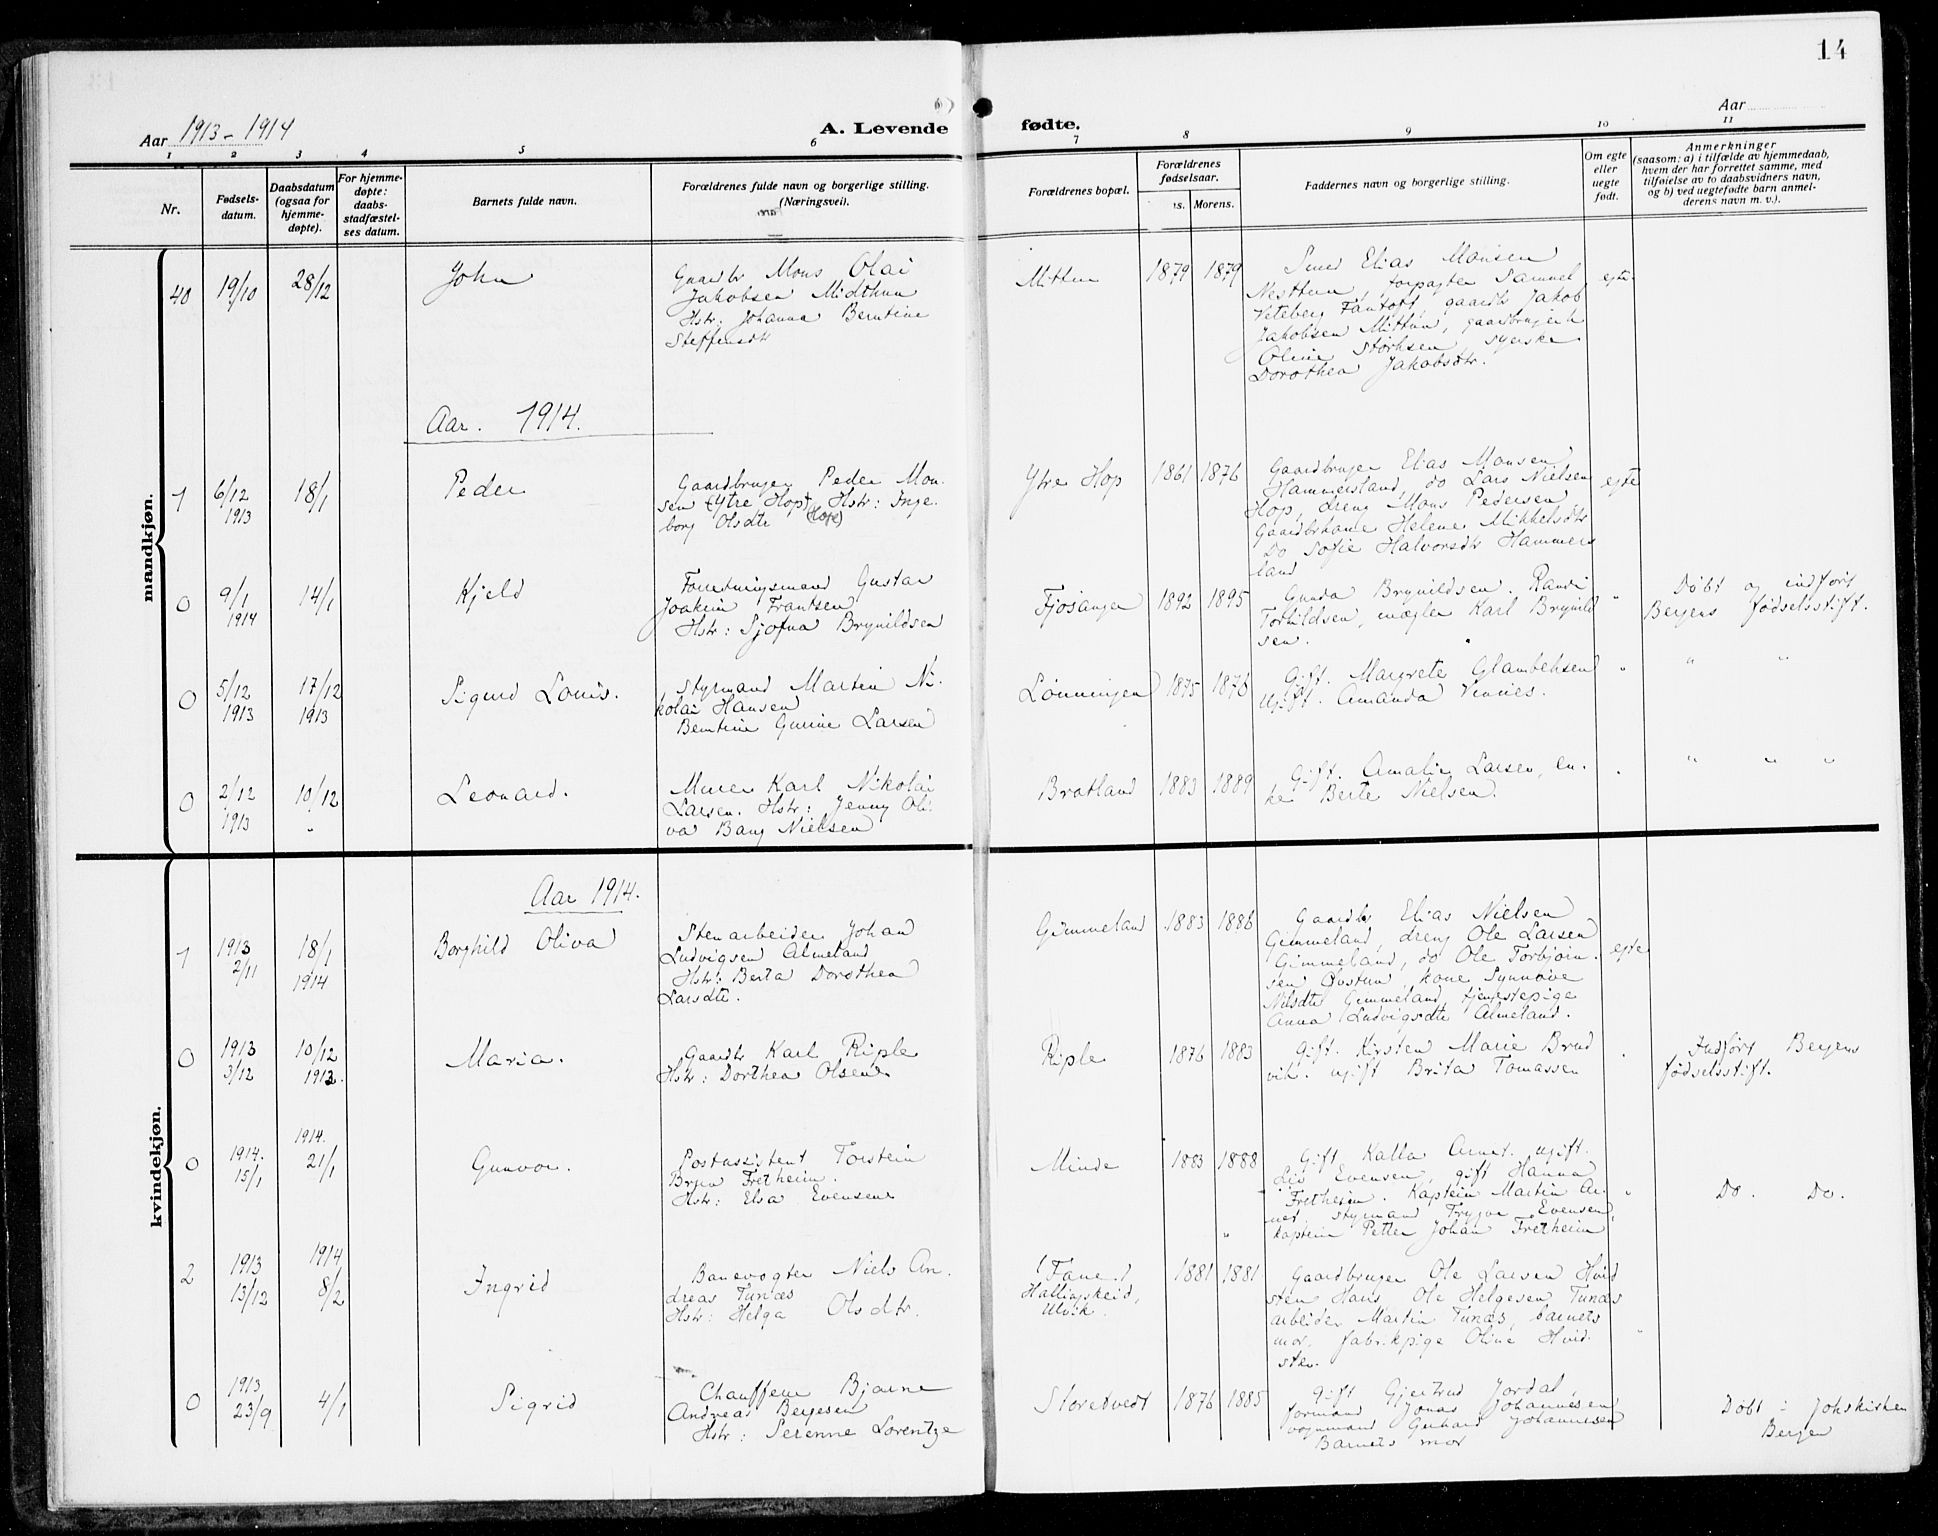 14
Aar 1913-1914
A. Levende
fødte.
Aar
1 2 3 4 5 6 7 8 9 10 11
Nr.
Fødsels-
datum.
Daabsdatum
(ogsaa for
hjemme-
døpte).
For hjemme-
døpte:
daabs-
stadfæstel-
ses datum.
Barnets fulde navn.
Forældrenes fulde navn og borgerlige stilling.
(Næringsvei).
Forældrenes bopæl.
Forældrenes
fødselsaar.
s. Morens.
Faddernes navn og borgerlige stilling.
Om egte
eller
uegte
født.
Anmerkninger
(saasom: a) i tilfælde av hjemmedaab,
hvem der har forrettet samme, med
tilføielse av to daabsvidners navn,
og b) ved uegtefødte barn anmel-
derens navn m. v.).
mandkjøn.
40 19/10 28/12 John
Gaardbr Mons Olai
Jakobsen Midthun
Hstr: Johanna Berntine
Steffensdtr
Mittun 1879 1879
Smed Elias Monsen
Nesttun, forpagter Samuel
Veteberg Fantoft, gaardb Jakob
Jakobsen Mittun, gaardbrugersk
Oline Størksen, syerske
Dorothea Jakobsdtr.
egte
Aar. 1914.
1 6/12 1913 18/1 Peder
Gaardbruger Peder Mon-
sen (Ytre Hop) Hstr: Inge-
borg Olsdtr (Hope)
Ytre Hop 1861 1876
Gaardbruger Elias Monsen
Hammersland, do Lars Nielsen
Hop, dreng Mons Pedersen
Gaardbrkone Helene Mikkelsdtr
Do Sofie Halvorsdtr Hammers
land
egte
0 9/1 1914 14/1 Kjeld
Forretningsmand Gustav
Joakim Frantsen
Hstr: Sjofna Brynildsen
Fjøsanger 1892 1895
Gunda Brynildsen. Randi
Torkildsen, mægler Karl Brynild
sen.
"
Døbt og indført
Bergens Fødselsstift.
0 5/12 1913 17/12 1913 Sigurd Louis.
Styrmand Martin Ni-
kolai Hansen
Berntine Gurine Larsen
Lønningen 1875 1876
Gift. Margrete Glambeksen
Ugift. Amanda Vinnes.
" " "
0 2/12 1913 10/12 " Leonard.
Murer Karl Nikolai
Larsen. Hstr: Jenny Oli-
va Bang Nielsen
Bratland 1883 1889
Gift. Amalie Larsen, en-
ke Berte Nielsen.
" " " "
kvindekjøn.
Aar 1914.
1 1913 2/11 18/1 1914 Borghild Oliva
Stenarbeider Johan
Ludvigsen Almeland
Hstr: Berta Dorothea
Larsdtr.
Gimmeland 1883 1886
Gaardb Elias Nielsen
Gimmeland, dreng Ole Larsen
Gimmeland, do Ole Torbjørn-
sen Øvstun, kone Synnøve
Nilsdtr Gimmeland, tjenestepige
Anna Ludvigsdtr Almeland.
egte
0 1913 3/12 10/12 1913. Maria.
Gaardbr Karl Riple
Hstr: Dorthea Olsen.
Riple 1876 1883
Gift. Kirsten Marie Brud
vik. ugift Brita Tomassen
"
Indført Bergens
fødselsstift.
0 1914. 15/1 1914. 21/1 Gunvor.
Postassistent Torstein
Bryn Fretheim.
Hstr: Elsa Evensen
Minde 1883 1888
Gift Kalla Arnet. ugift.
Lis Evensen, gift Hanna
Fretheim. Kaptein Martin Ar-
net, styrmand Trygve Evensen,
Kaptein Petter Johan Fretheim
"
Do. Do.
2 1913 13/12 1914 8/2 Ingrid
Banevogter Niels An-
dreas Tunæs
Hstr: Helga Olsdtr.
(Fane)
Hallingskeid,
Ulvik.
1881 1881
Gaardbruger Ole Larsen Hvid
sten Hans Ole Helgesen Tunæs
arbeider Martin Tunæs, barnets
mor, fabrikpige Oline Hvid-
sten.
"
0 1913 23/9 4/1 Sigrid
Chauffeur Bjarne
Andreas Bergesen
Hstr: Serenne Lorentze
Storetvedt 1876 1885
Gift Gjertrud Jordal,
formand Jonas Johannesen
vognmand Gerhard Johannesen
Barnets mor
Døbt i Johskirken
Bergen